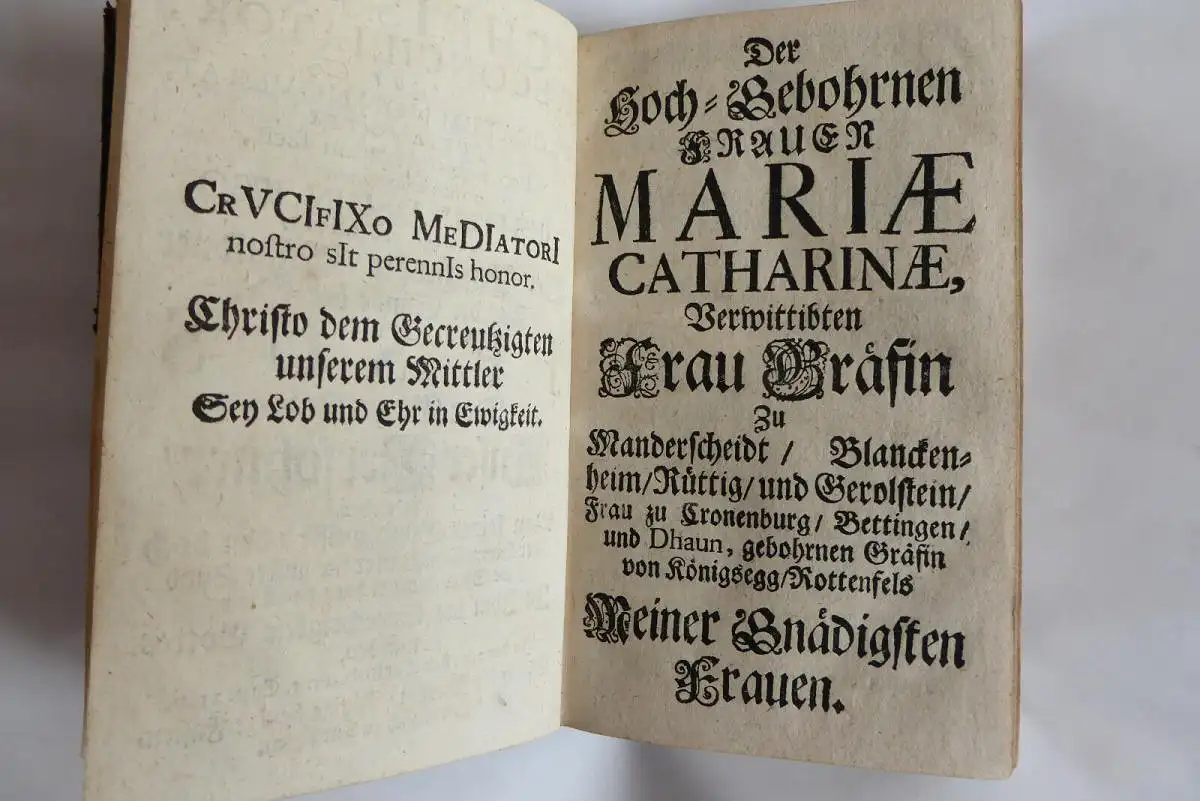 CRVCIFIXO MEDIATORI
noſtro sIt perennIs honor.
Chriſto dem Gecreutzigten
unſerem Mittler
Sey Lob und Ehr in Ewigkeit.
Der
Hoch-Gebohrnen
FRAUEN
MARIÆ
CATHARINÆ,
Verwittibten
Frau Gräfin
Zu
Manderſcheidt / Blancken-
heim/Rüttig/und Gerolſtein/
Frau zu Cronenburg/ Bettingen/
und Dhaun, gebohrnen Gräfin
von Königsegg/Rottenfels
Meiner Gnädigſten
Frauen.